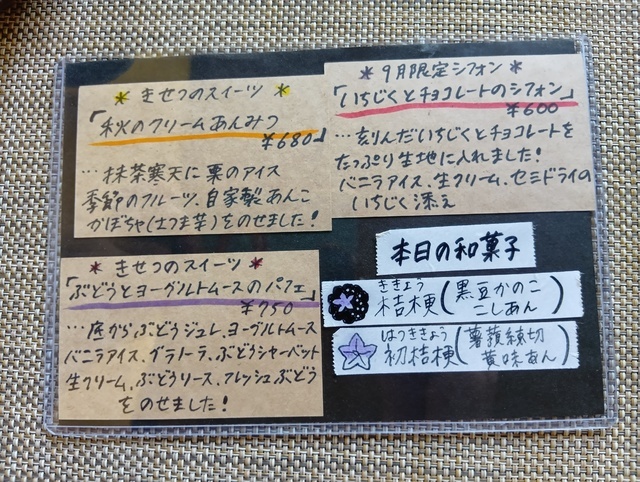 * きせつのスイーツ *
「秋のクリームあんみつ」
¥680
…抹茶寒天に栗のアイス
季節のフルーツ、自家製あんこ
かぼちゃ(さつま芋)をのせました!
* 9月限定シフォン *
「いちじくとチョコレートのシフォン」
¥600
…刻んだいちじくとチョコレートを
たっぷり生地に入れました!
バニラアイス、生クリーム、セミドライの
いちじく添え
* きせつのスイーツ *
「ぶどうとヨーグルトムースのパフェ」
¥750
…底からぶどうジュレ、ヨーグルトムース
バニラアイス、グラノーラ、ぶどうシャーベット
生クリーム、ぶどうソース、フレッシュぶどう
をのせました!
本日の和菓子
ききょう
桔梗(黒豆かのこ
こしあん)
はつききょう
初桔梗(薯蕷練切
黄味あん)